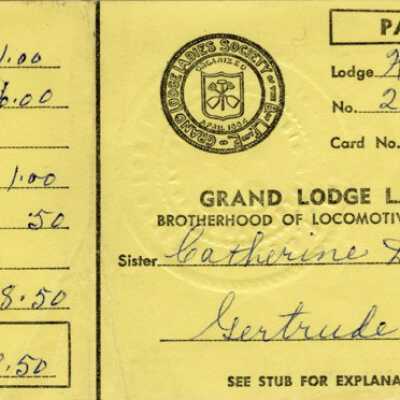 1.00
6.00
1.00
.50
8.50
8.50
GRAND LODGE LADIES SOCIETY OF THE B. of L.F. & E.
ORGANIZED
APRIL 1884
PA
Lodge
No. 2
Card No.
GRAND LODGE L
BROTHERHOOD OF LOCOMOTIV
Sister Catherine
Gertrude
SEE STUB FOR EXPLANA